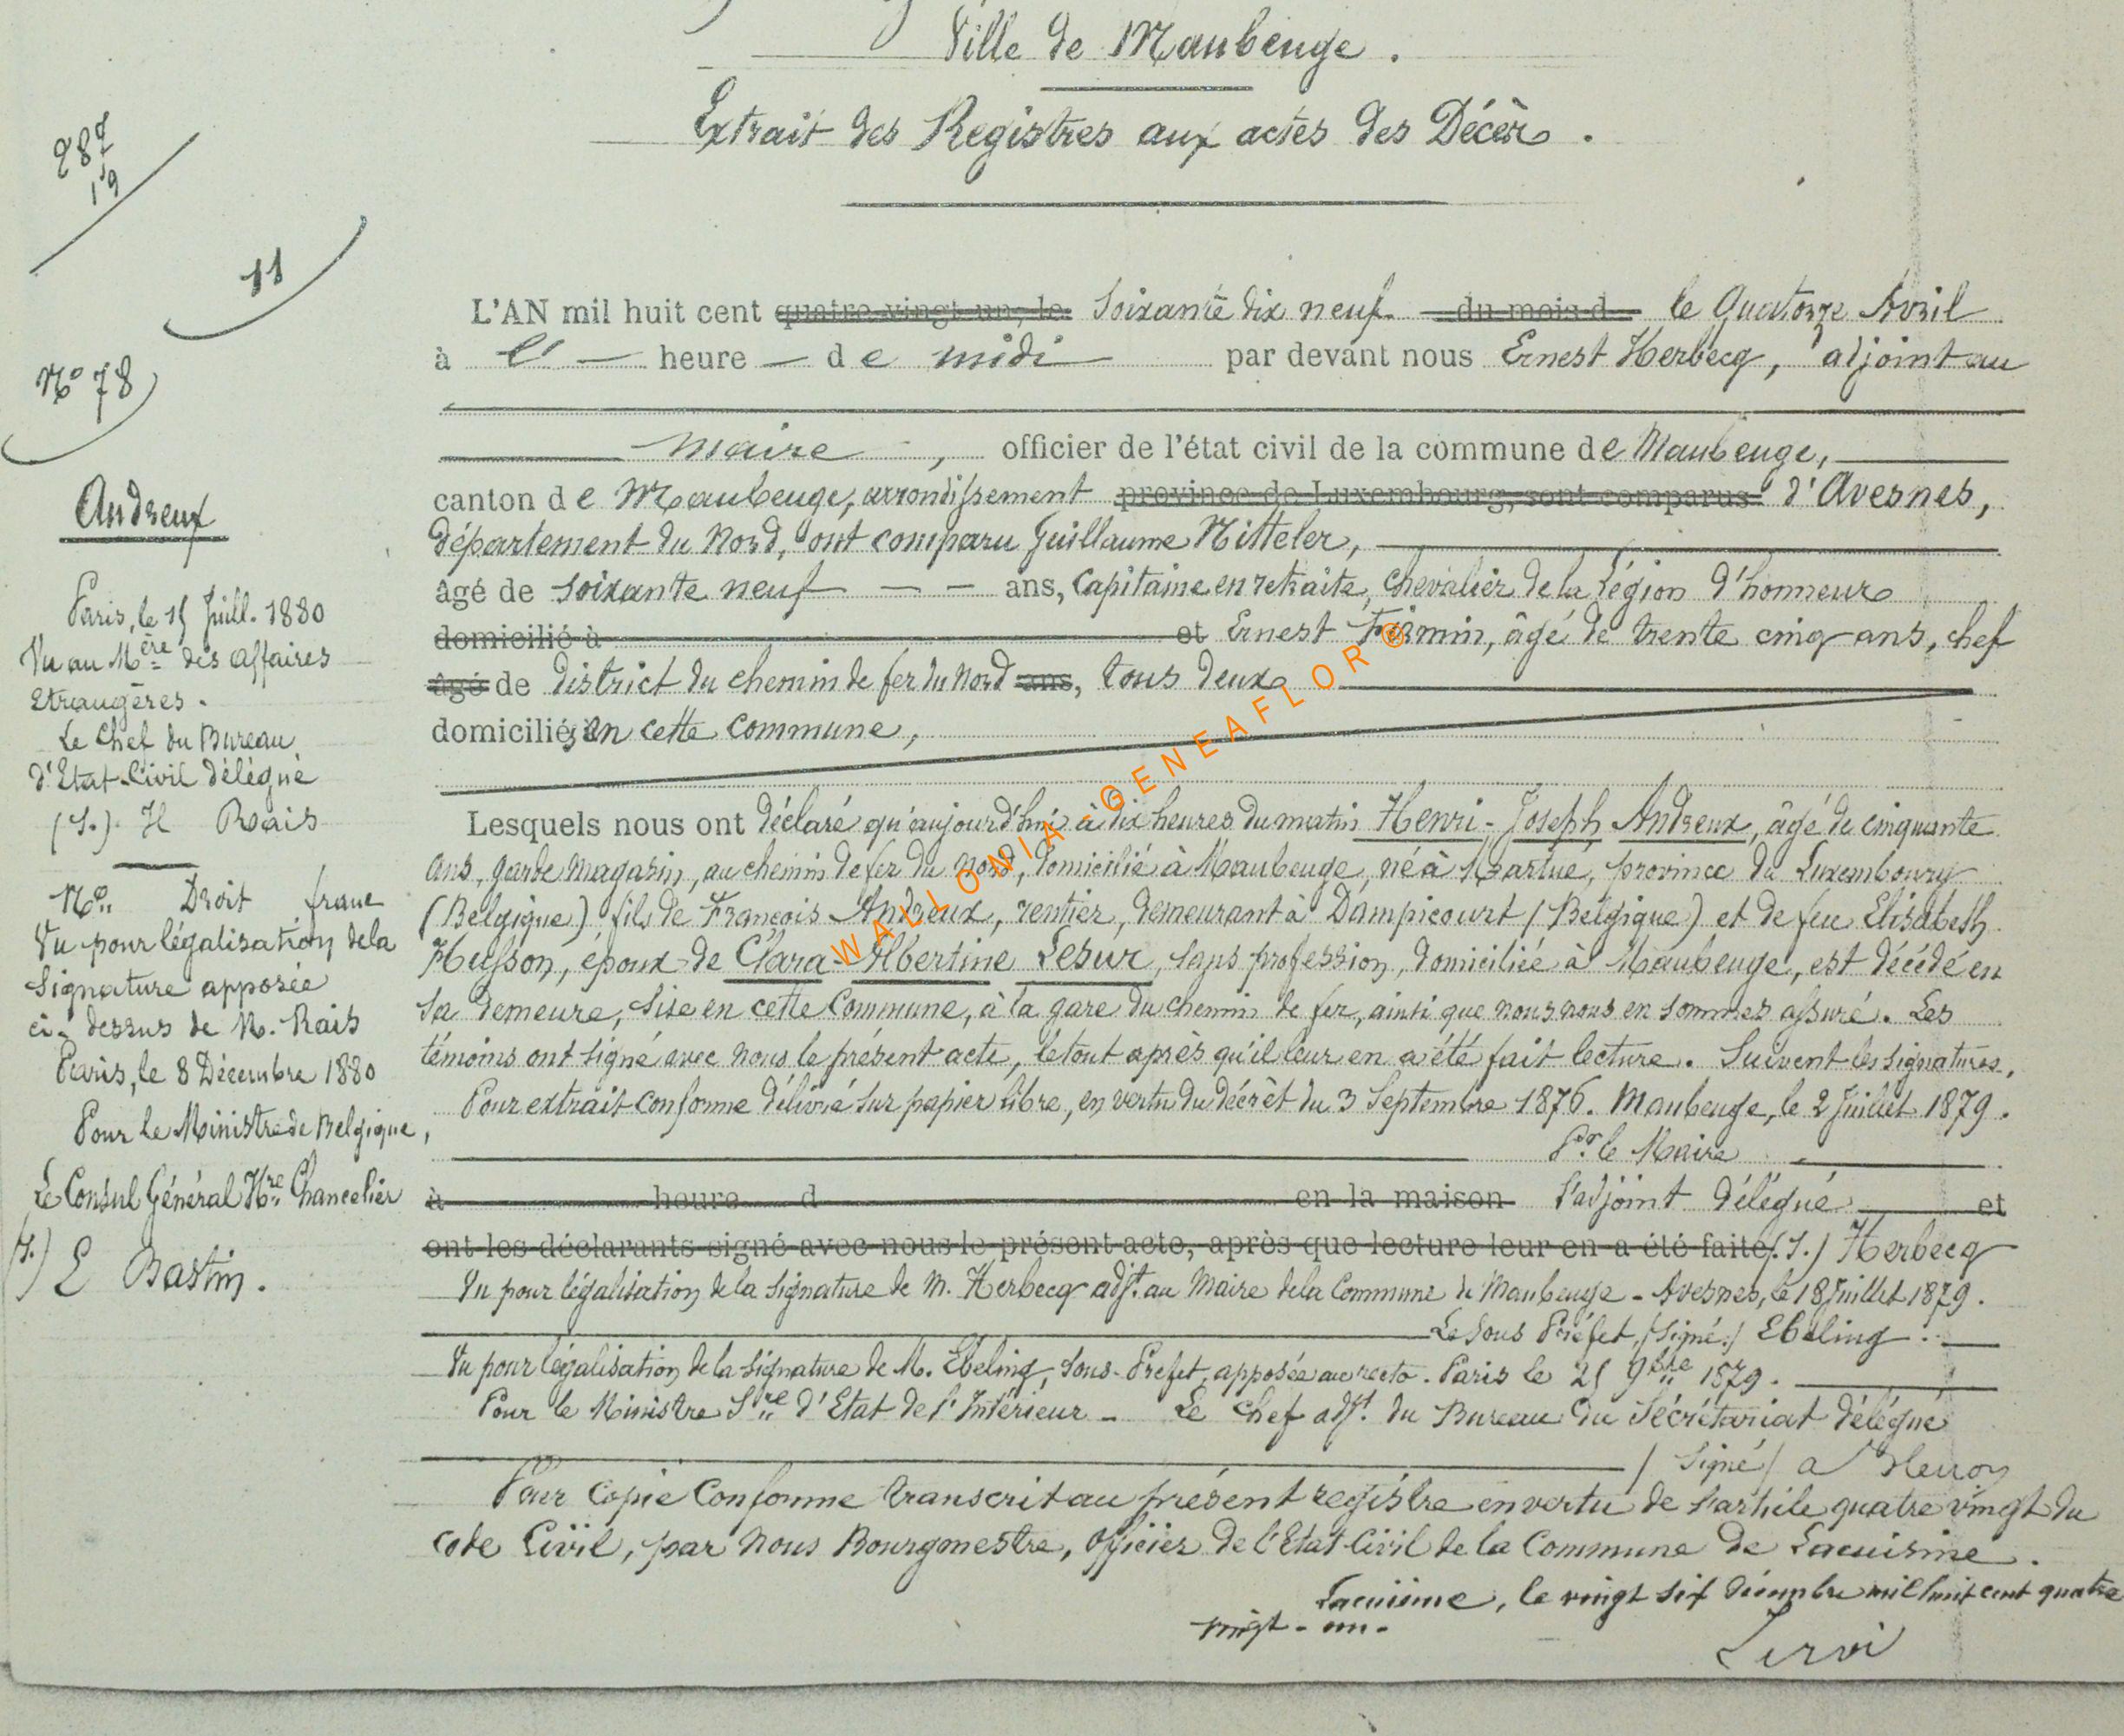 Ville de Maubeuge.
Extrait des Registres aux actes des Décès.
287
19
11
N° 78
Andreux
Paris, le 15 Juill. 1880
Vu au M.ère des affaires
Etrangères.
Le Chef du Bureau
d'Etat-Civil délégué
(S.) H Rais
N° Droit franc
Vu pour légalisation de la
signature apposée
ci-dessus de M. Rais
Paris, le 8 Décembre 1880
Pour le Ministre de Belgique,
Le Consul Général Hre Chancelier
(S.) E Bastin.
L'AN mil huit cent quatre-vingt-un, le soixante dix neuf du mois d le Quatorze Avril
à heure de midi par devant nous Ernest Herbecq, adjoint au
maire, officier de l'état civil de la commune de Maubeuge,
canton de Maubeuge, arrondissement province de Luxembourg, sont comparus d'Avesnes,
département du Nord, ont comparu Guillaume Mitteler,
âgé de soixante neuf ans, Capitaine en retraite, chevalier de la Légion d'honneur
domicilié à et Ernest Firmin, âgé de trente cinq ans, chef
âgé de district du chemin de fer du Nord ans, tous deux
domiciliés en cette commune,
Lesquels nous ont déclaré qu'aujourd'hui à dix heures du matin Henri-Joseph Andreux, âgé de cinquante
ans, garde magasin, au chemin de fer du Nord, domicilié à Maubeuge, né à Martué, province du Luxembourg
(Belgique) fils de François Andreux, rentier, demeurant à Dampicourt (Belgique) et de feu Elisabeth
Husson, époux de Clara-Albertine Lesur, sans profession, domiciliée à Maubeuge, est décédé en
sa demeure, sise en cette Commune, à la gare du chemin de fer, ainsi que nous nous en sommes assuré. Les
témoins ont signé avec nous le présent acte, le tout après qu'il leur en a été fait lecture. Suivent les signatures.
Pour extrait conforme délivré sur papier libre, en vertu du décrèt du 3 Septembre 1876. Maubeuge, le 2 Juillet 1879.
Pr le Maire
à heure d en la maison l'adjoint délégué et
ont les déclarants signé avec nous le présent acte, après que lecture leur en a été faite (S.) Herbecq
Vu pour légalisation de la signature de M. Herbecq adjt. au Maire de la Commune de Maubeuge - Avesnes, le 18 Juillet 1879.
Le Sous Préfet, (signé) Ebeling.
Vu pour légalisation de la signature de M. Ebeling, Sous-Préfet, apposée au recto. Paris le 25 9bre 1879.
Pour le Ministre Sre d'Etat de l'Intérieur - Le Chef adjt. du Bureau du Sécrétariat délégué
(signé) a
Pour Copie Conforme transcrit au présent registre en vertu de l'article quatre vingt du
code Civil, par nous Bourgmestre, Officier de l'Etat-Civil de la Commune de Lacuisine.
Lacuisine, le vingt six décembre mil huit cent quatre
vingt-un.
WALLONIA-GENEAFLOR©